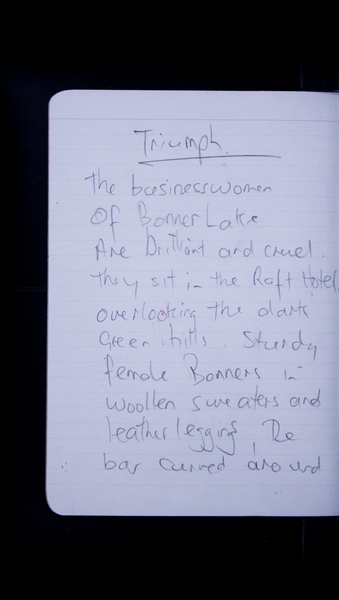 Triumph
The businesswomen
Of Bonner Lake
Are Brilliant and cruel.
They sit in the Raft Hotel,
overlooking the dark
Green hills. Sturdy
female Bonners in
woollen sweaters and
leather leggings, The
bar curved around